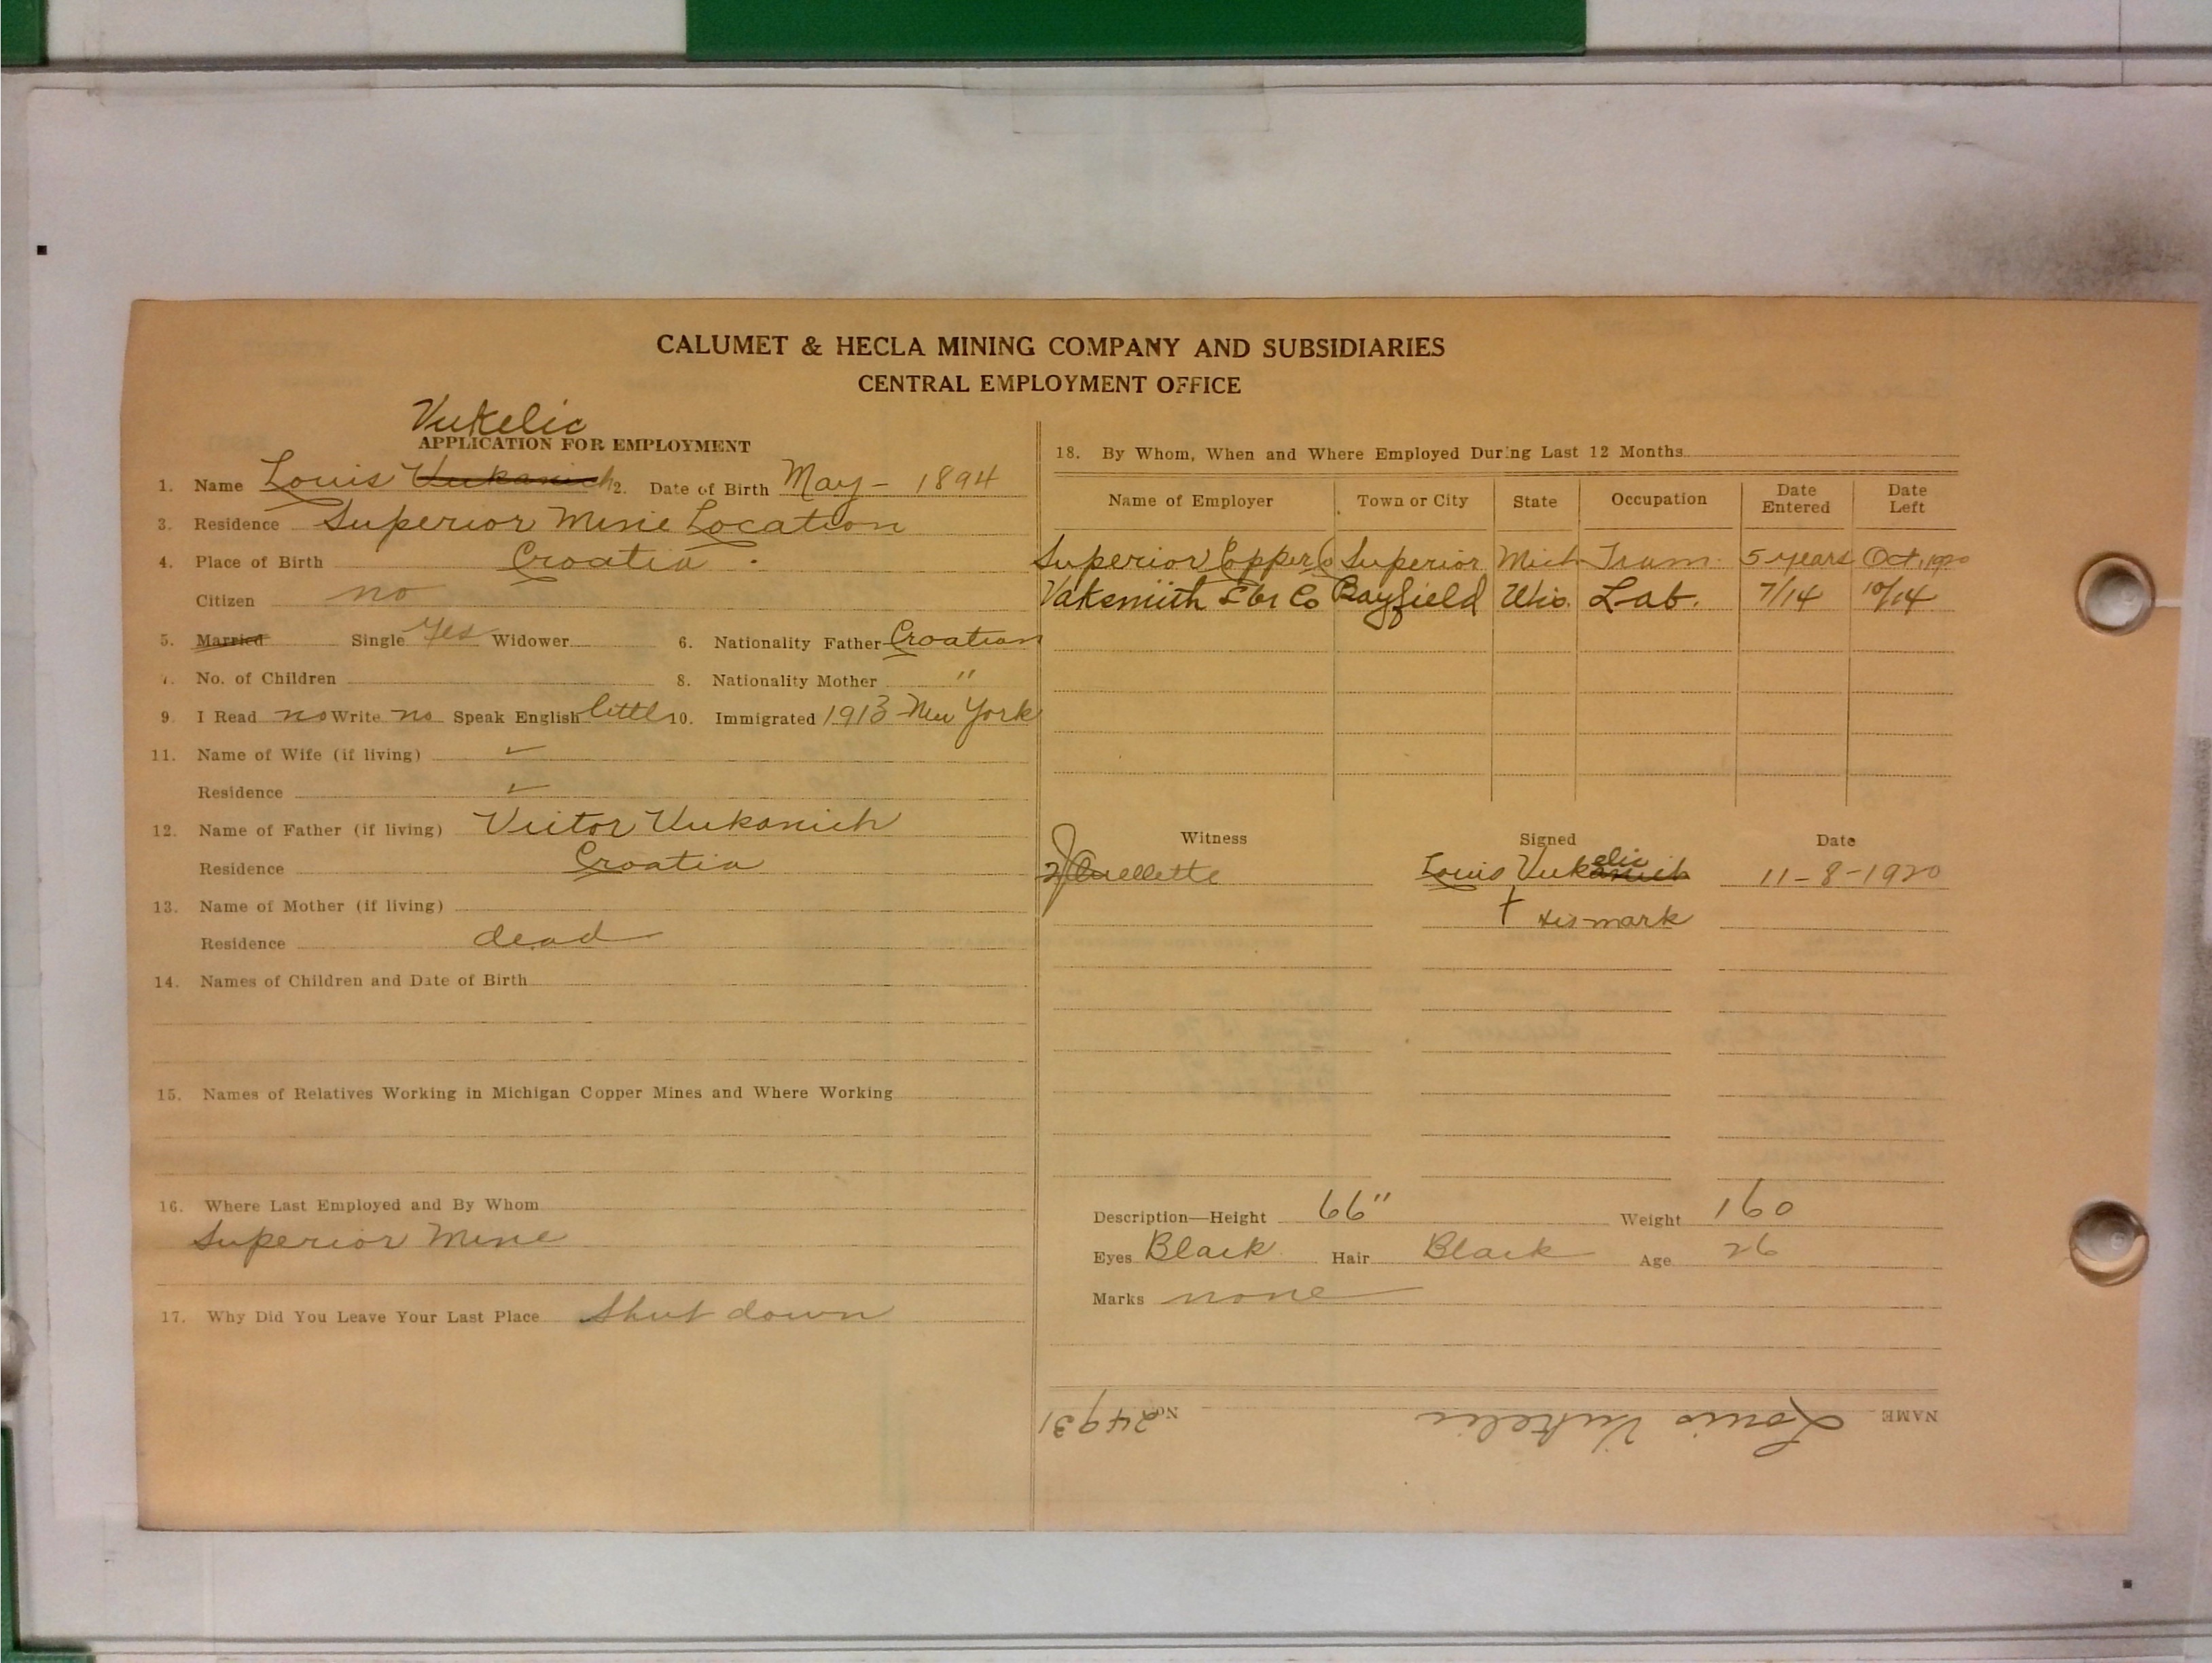 CALUMET & HECLA MINING COMPANY AND SUBSIDIARIES
CENTRAL EMPLOYMENT OFFICE
Vukelic
APPLICATION FOR EMPLOYMENT
1. Name Louis Vukanich 2. Date of Birth May - 1894
3. Residence Superior Mine Location
4. Place of Birth Croatia
Citizen no
5. Married Single Yes Widower 6. Nationality Father Croatian
7. No. of Children 8. Nationality Mother "
9. I Read no Write no Speak English little 10. Immigrated 1913 - New York
11. Name of Wife (if living) ✓
Residence ✓
12. Name of Father (if living) Victor Vukanich
Residence Croatia
13. Name of Mother (if living)
Residence dead
14. Names of Children and Date of Birth
15. Names of Relatives Working in Michigan Copper Mines and Where Working
16. Where Last Employed and By Whom
Superior Mine
17. Why Did You Leave Your Last Place Shut down
18. By Whom, When and Where Employed During Last 12 Months
Name of Employer Town or City State Occupation Date Entered Date Left
Superior Copper Co Superior Mich Tram. 5 years Oct, 1920
Co Bayfield Wis. Lab. 7/14 10/14
Witness Signed Date
Ouellette Louis Vukanich elic 11-8-1920
† His mark
Description—Height 66" Weight 160
Eyes Black Hair Black Age 26
Marks none
NAME Louis Vukelic No. 24931